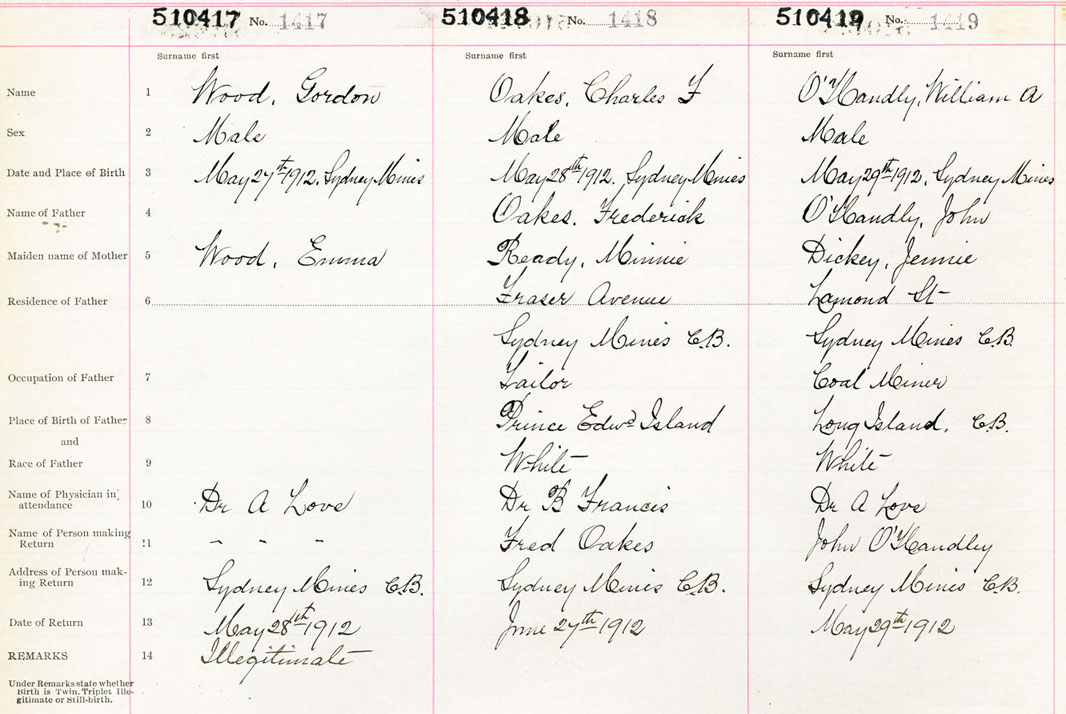 510417 No. 1417 510418 No. 1418 510419 No. 1419
Surname first Surname first Surname first
Name 1 Wood, Gordon Oakes, Charles F O'Handly, William A
Sex 2 Male Male Male
Date and Place of Birth 3 May 27th 1912. Sydney Mines May 28th 1912. Sydney Mines May 29th 1912. Sydney Mines
Name of Father 4 Oakes, Frederick O'Handly, John
Maiden name of Mother 5 Wood, Emma Ready, Minnie Dickey, Jennie
Residence of Father 6 Fraser Avenue Lamond St
Sydney Mines C.B. Sydney Mines C.B.
Occupation of Father 7 Tailor Coal Miner
Place of Birth of Father 8 Prince Edwd Island Long Island, C.B.
and
Race of Father 9 White White
Name of Physician in
attendance 10 Dr A Love Dr B Francis Dr A Love
Name of Person making
Return 11 - - - Fred Oakes John O'Handley
Address of Person mak-
ing Return 12 Sydney Mines C.B. Sydney Mines C.B. Sydney Mines C.B.
Date of Return 13 May 28th 1912 June 27th 1912 May 29th 1912
REMARKS 14 Illegitimate
Under Remarks state whether
Birth is Twin, Triplet Ille-
gitimate or Still-birth.